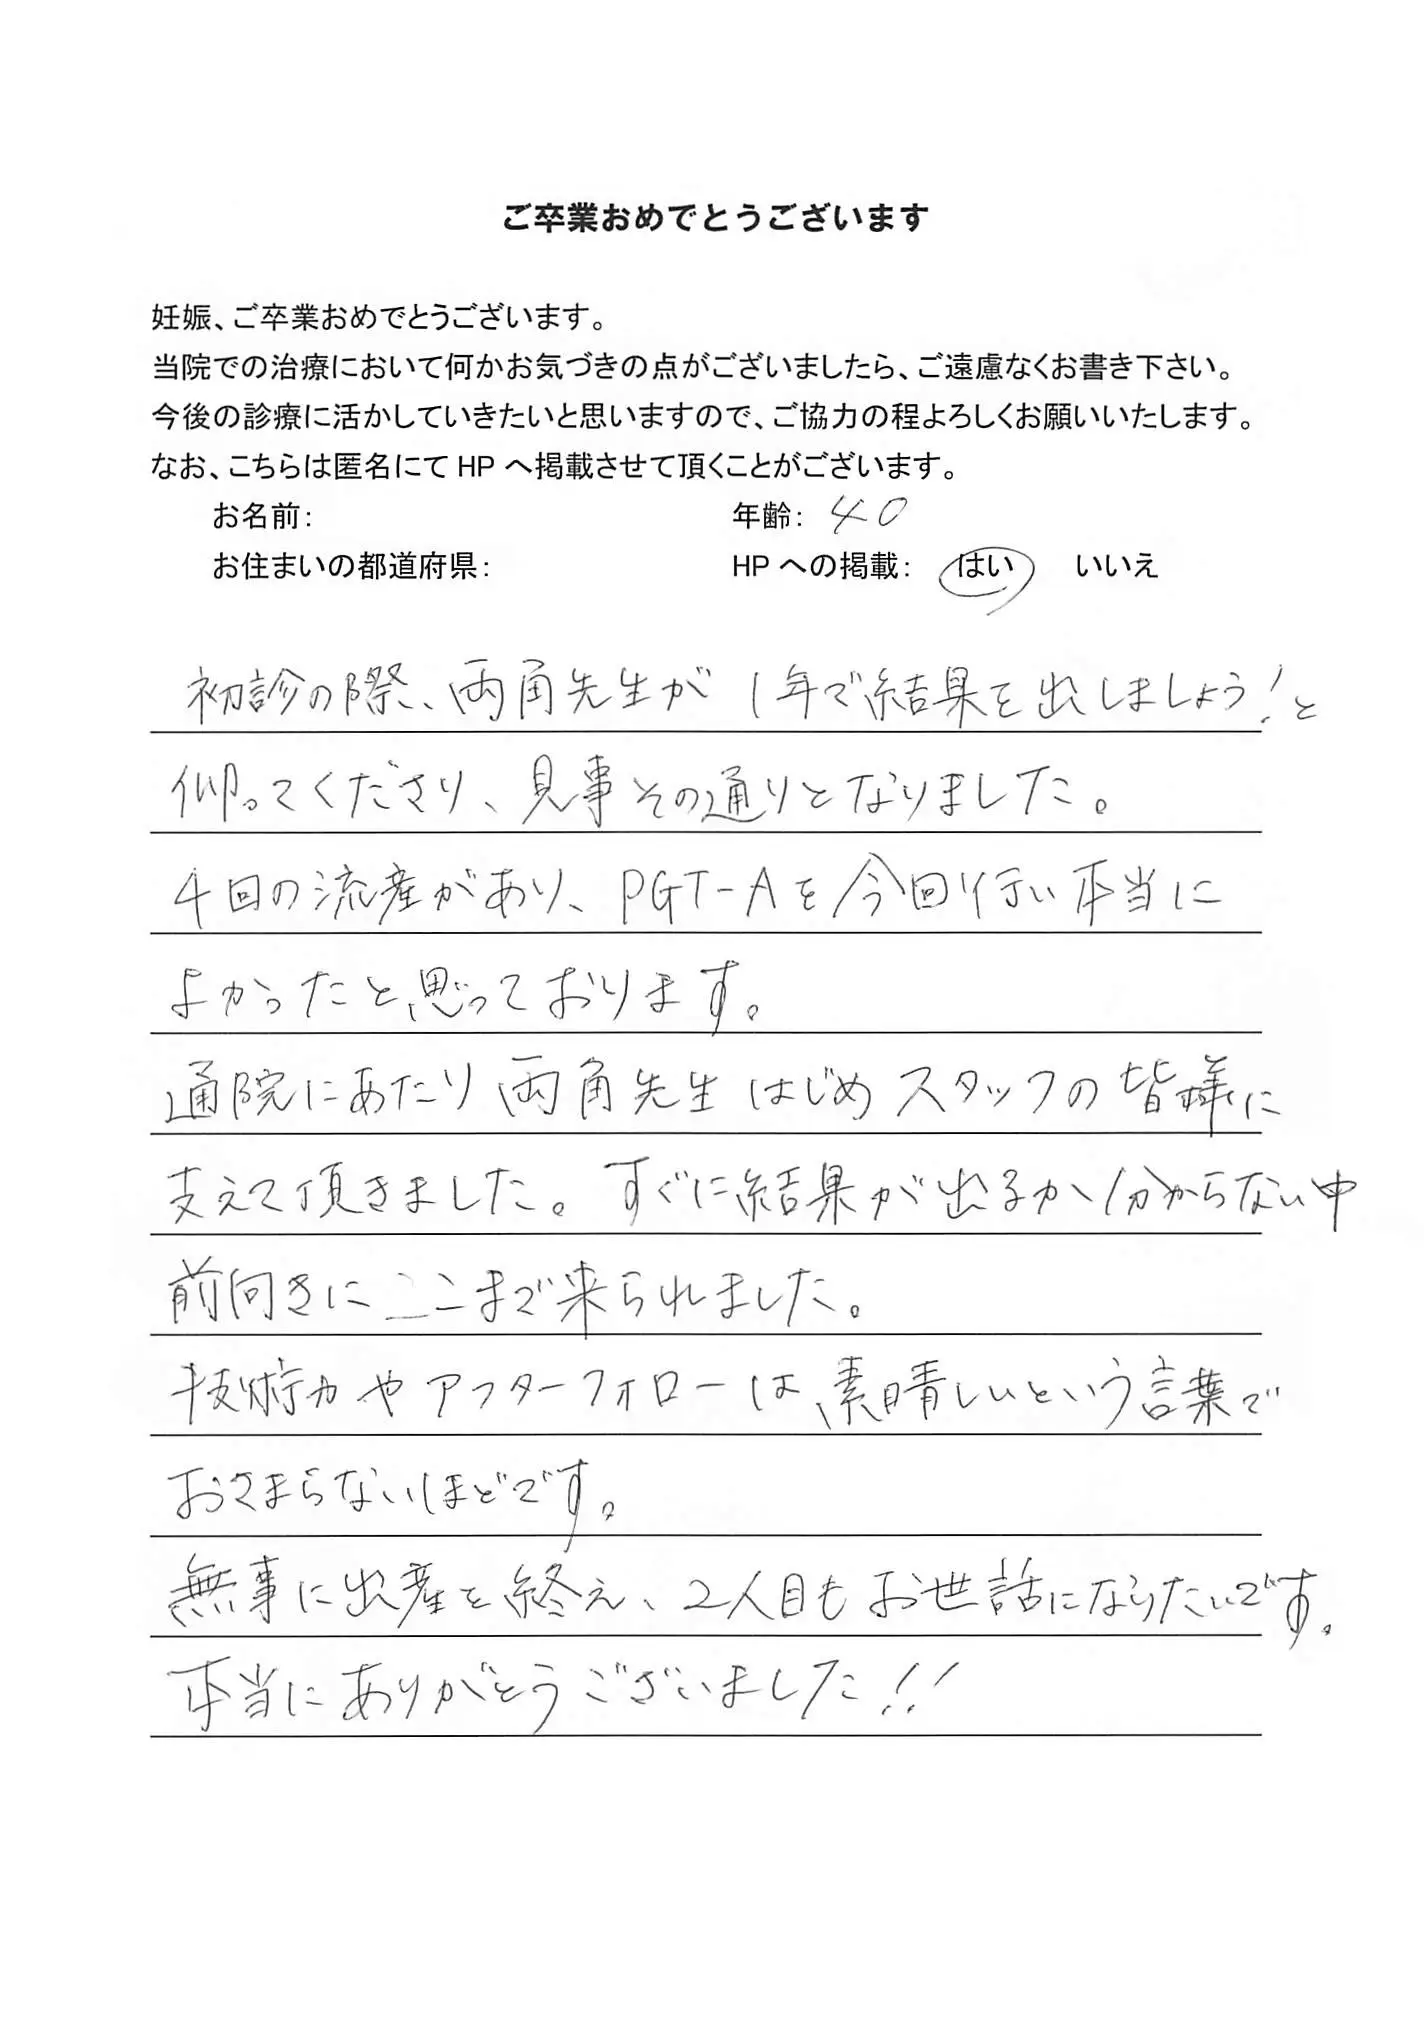 ご卒業おめでとうございます
妊娠、ご卒業おめでとうございます。
当院での治療において何かお気づきの点がございましたら、ご遠慮なくお書き下さい。
今後の診療に活かしていきたいと思いますので、ご協力の程よろしくお願いいたします。
なお、こちらは匿名にて HP へ掲載させて頂くことがございます。
お名前： 年齢： 40
お住まいの都道府県： HP への掲載： はい いいえ
初診の際、両角先生が 1年で結果を出しましょう！と
仰ってくださり、見事その通りとなりました。
4回の流産があり、PGT-Aを今回行い本当に
よかったと思っております。
通院にあたり両角先生はじめスタッフの皆様に
支えて頂きました。すぐに結果が出るか分からない中
前向きにここまで来られました。
技術力やアフターフォローは素晴しいという言葉で
おさまらないほどです。
無事に出産を終え、2人目もお世話になりたいです。
本当にありがとうございました！！